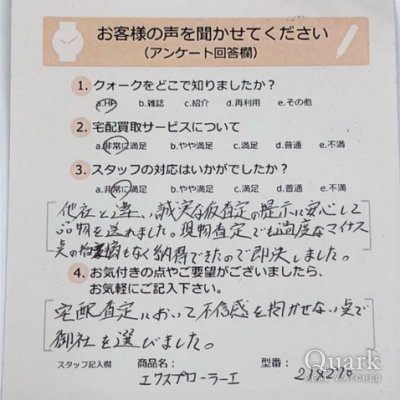 お客様の声を聞かせてください
(アンケート回答欄)
1. クォークをどこで知りましたか?
a.HP b.雑誌 c.紹介 d.再利用 e.その他
2. 宅配買取サービスについて
a.非常に満足 b.やや満足 c.満足 d.普通 e.不満
3. スタッフの対応はいかがでしたか?
a.非常に満足 b.やや満足 c.満足 d.普通 e.不満
他社と違い、誠実な仮査定の提示に安心して
品物を送れました。現物査定でも過度なマイナス
点の指摘もなく納得できたので即決しました。
4. お気付きの点やご要望がございましたら、
お気軽にご記入下さい。
宅配査定において不信感を抱かせない点で
御社を選びました。
スタッフ記入欄 商品名: エクスプローラーI 型番: 218270
Quark